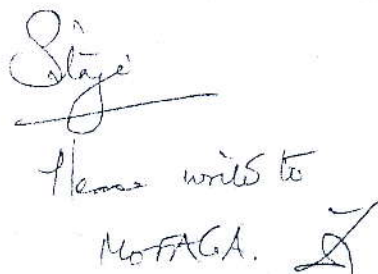 Stage
Please write to
MoFAGA.